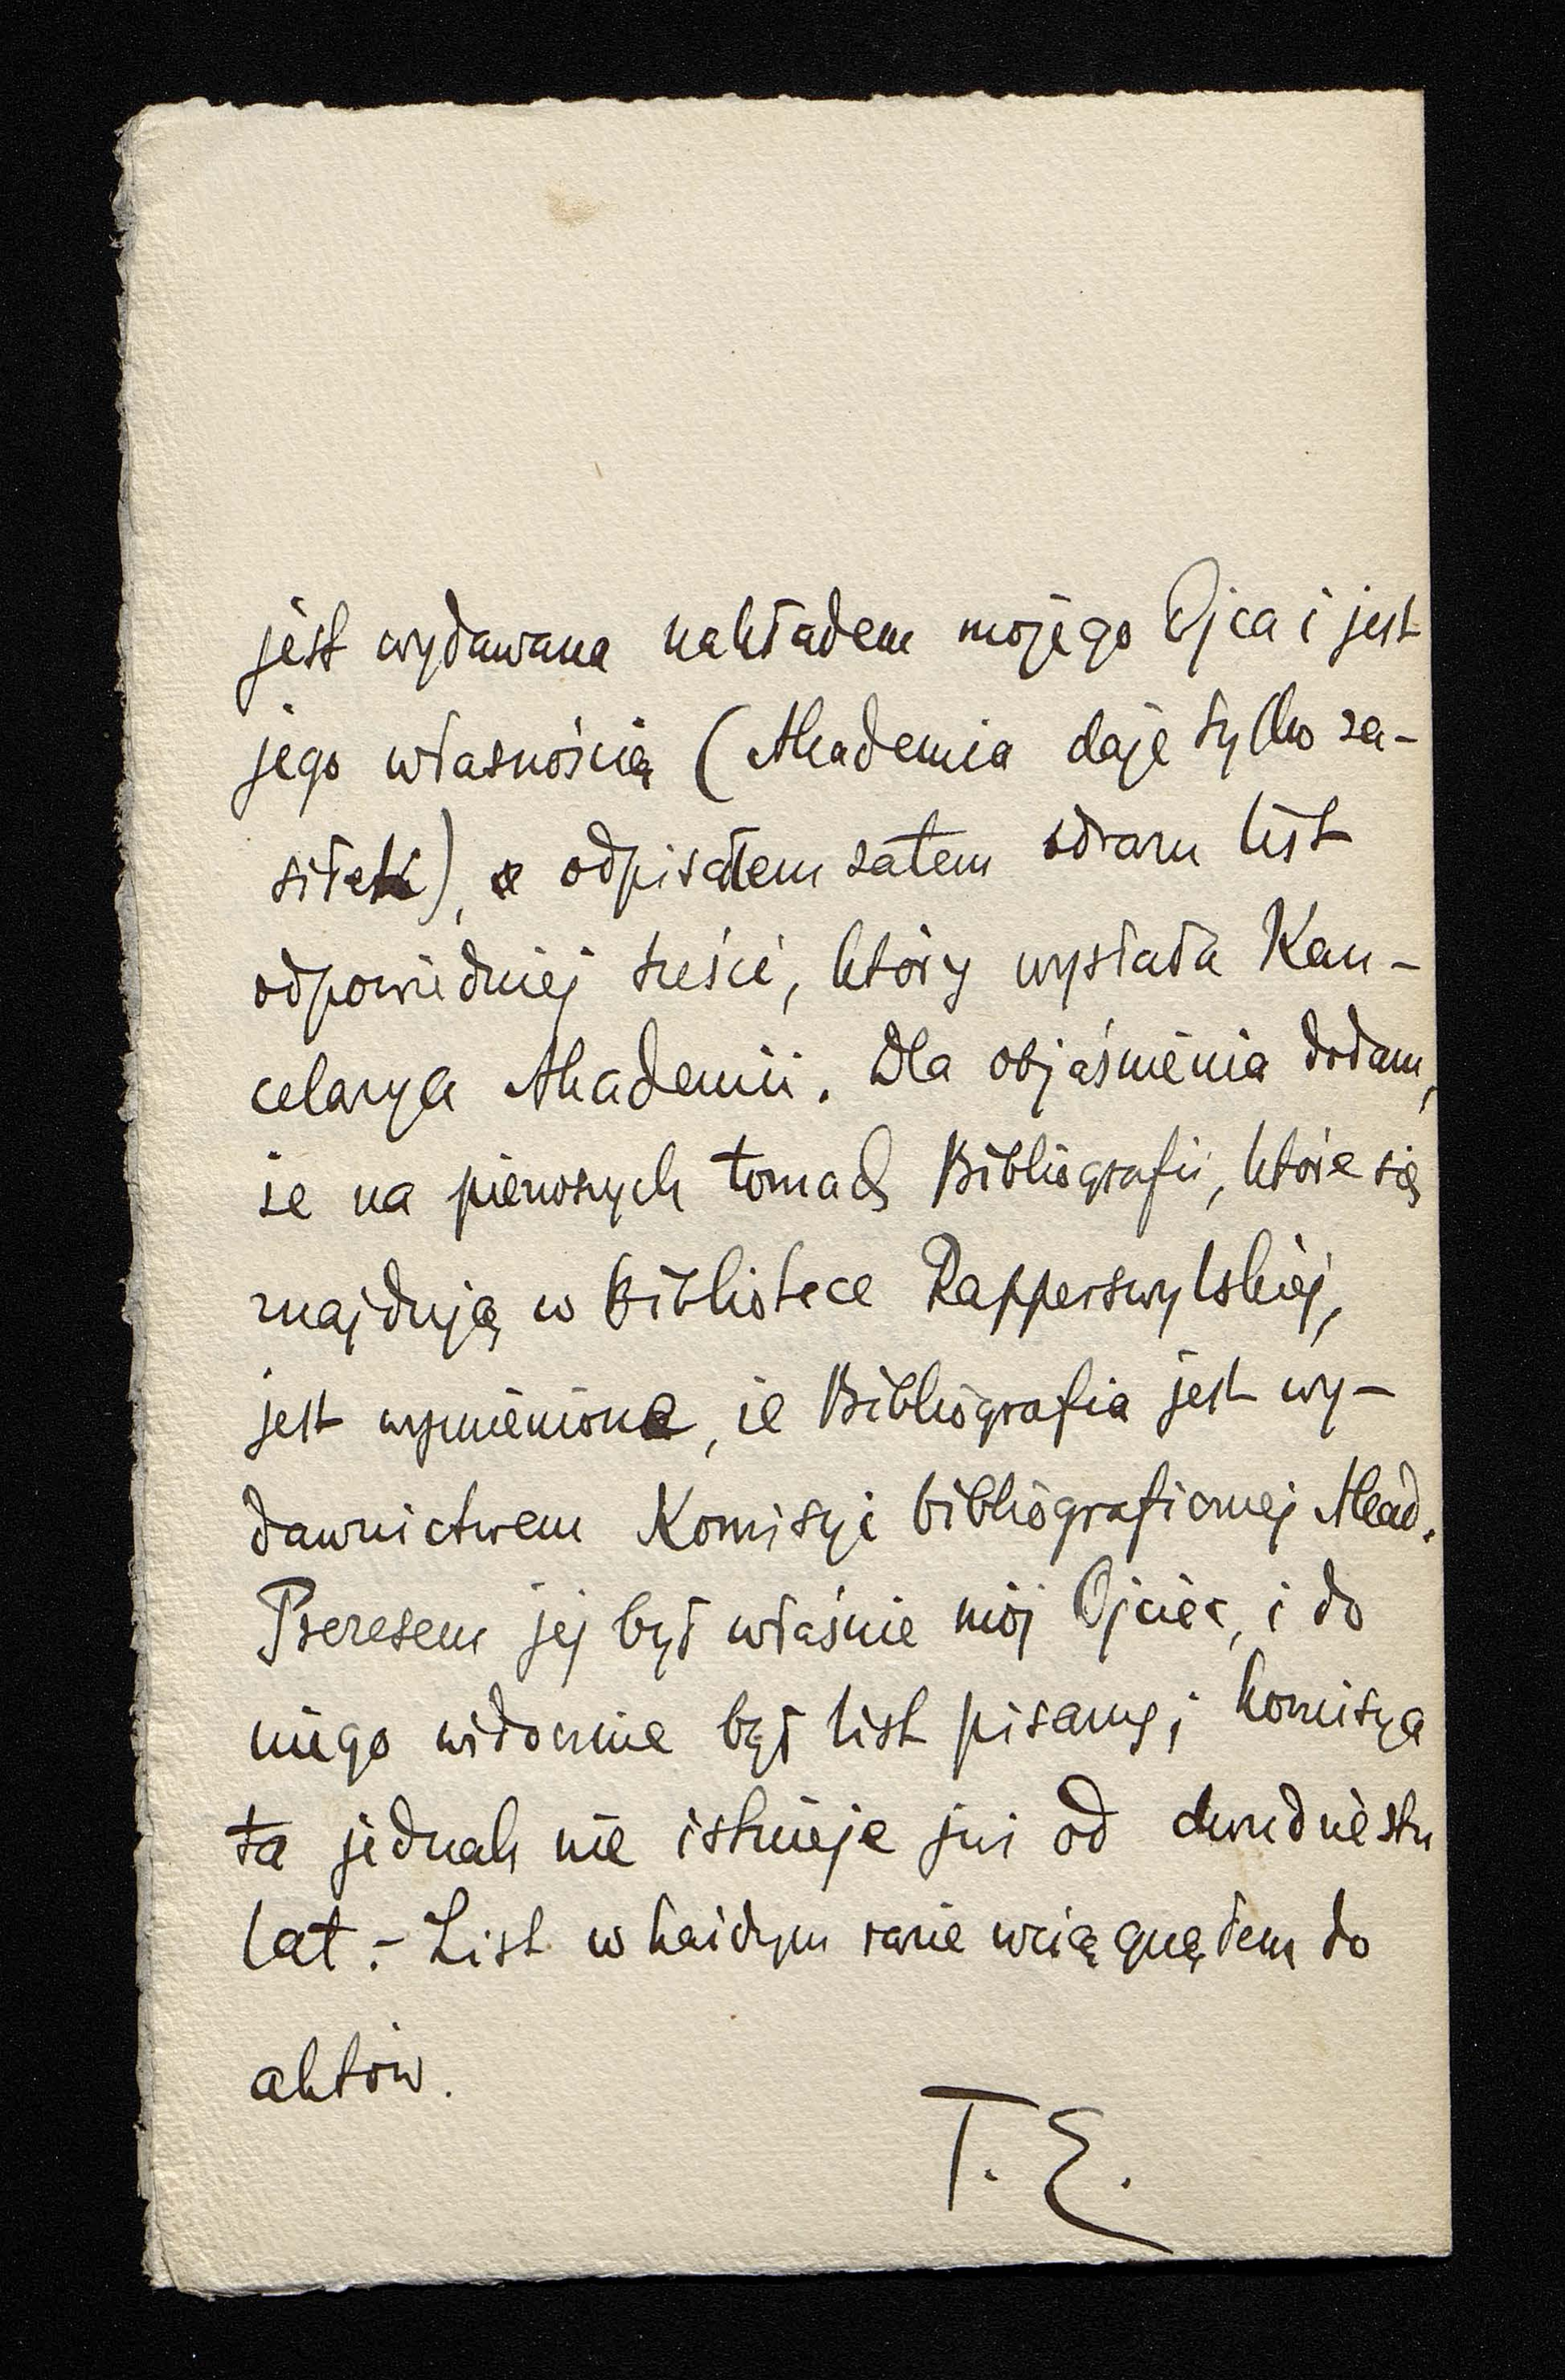 jest wydawana nakładem mojego Ojca i jest
jego własnością (Akademia daje tylko za-
siłek), odpisałem zatem zdrazu list
odpowiedniej treści, który wysłała Kan-
celarya Akademii. Dla objaśnienia dodam,
że na pierwszych tomach Bibliografii, które się
znajdują w Bibliotece Rapperswylskiej,
jest wymienione, że Bibliografia jest wy-
dawnictwem Komisyi bibliograficznej Akad.
Prezesem jej był właśnie mój Ojciec, i do
niego widocznie był list pisany; komisya
ta jednak nie istnieje już od dwudziestu
lat. - List w każdym razie wciągnąłem do
aktów.
T. E.